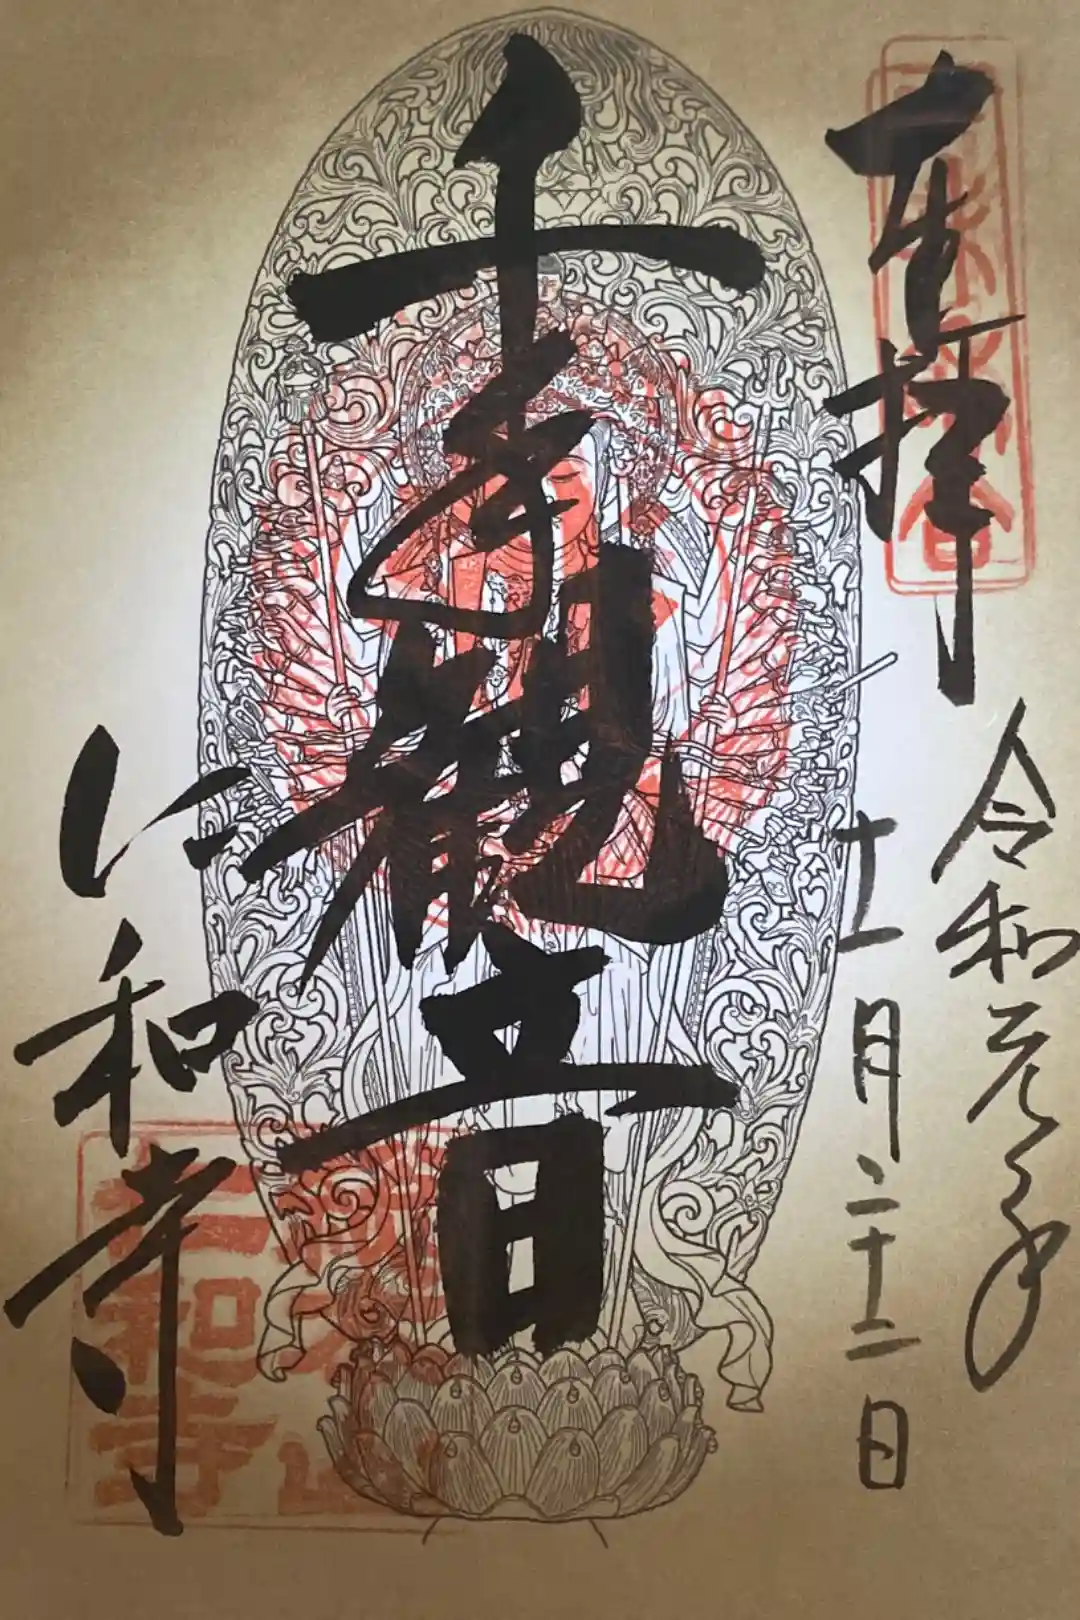 奉拝
令和元年
十一月二十二日
千手観音
仁和寺
仁和寺